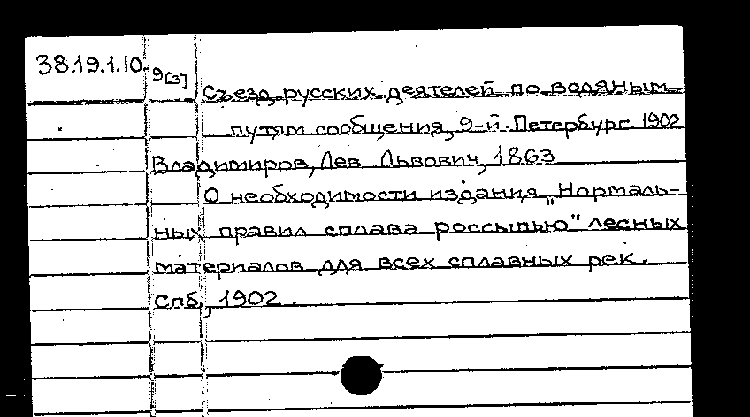 38.19.1.10-9[3]
Съезд русских деятелей по водяным
путям сообщения, 9-й. Петербург 1902
Владимиров, Лев Львович, 1863
О необходимости издания „Нормаль-
ных правил сплава россыпью" лесных
материалов для всех сплавных рек.
Спб, 1902.